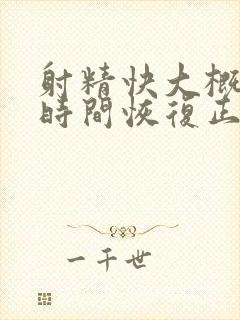 射精快大概
時間恢復正
一千世